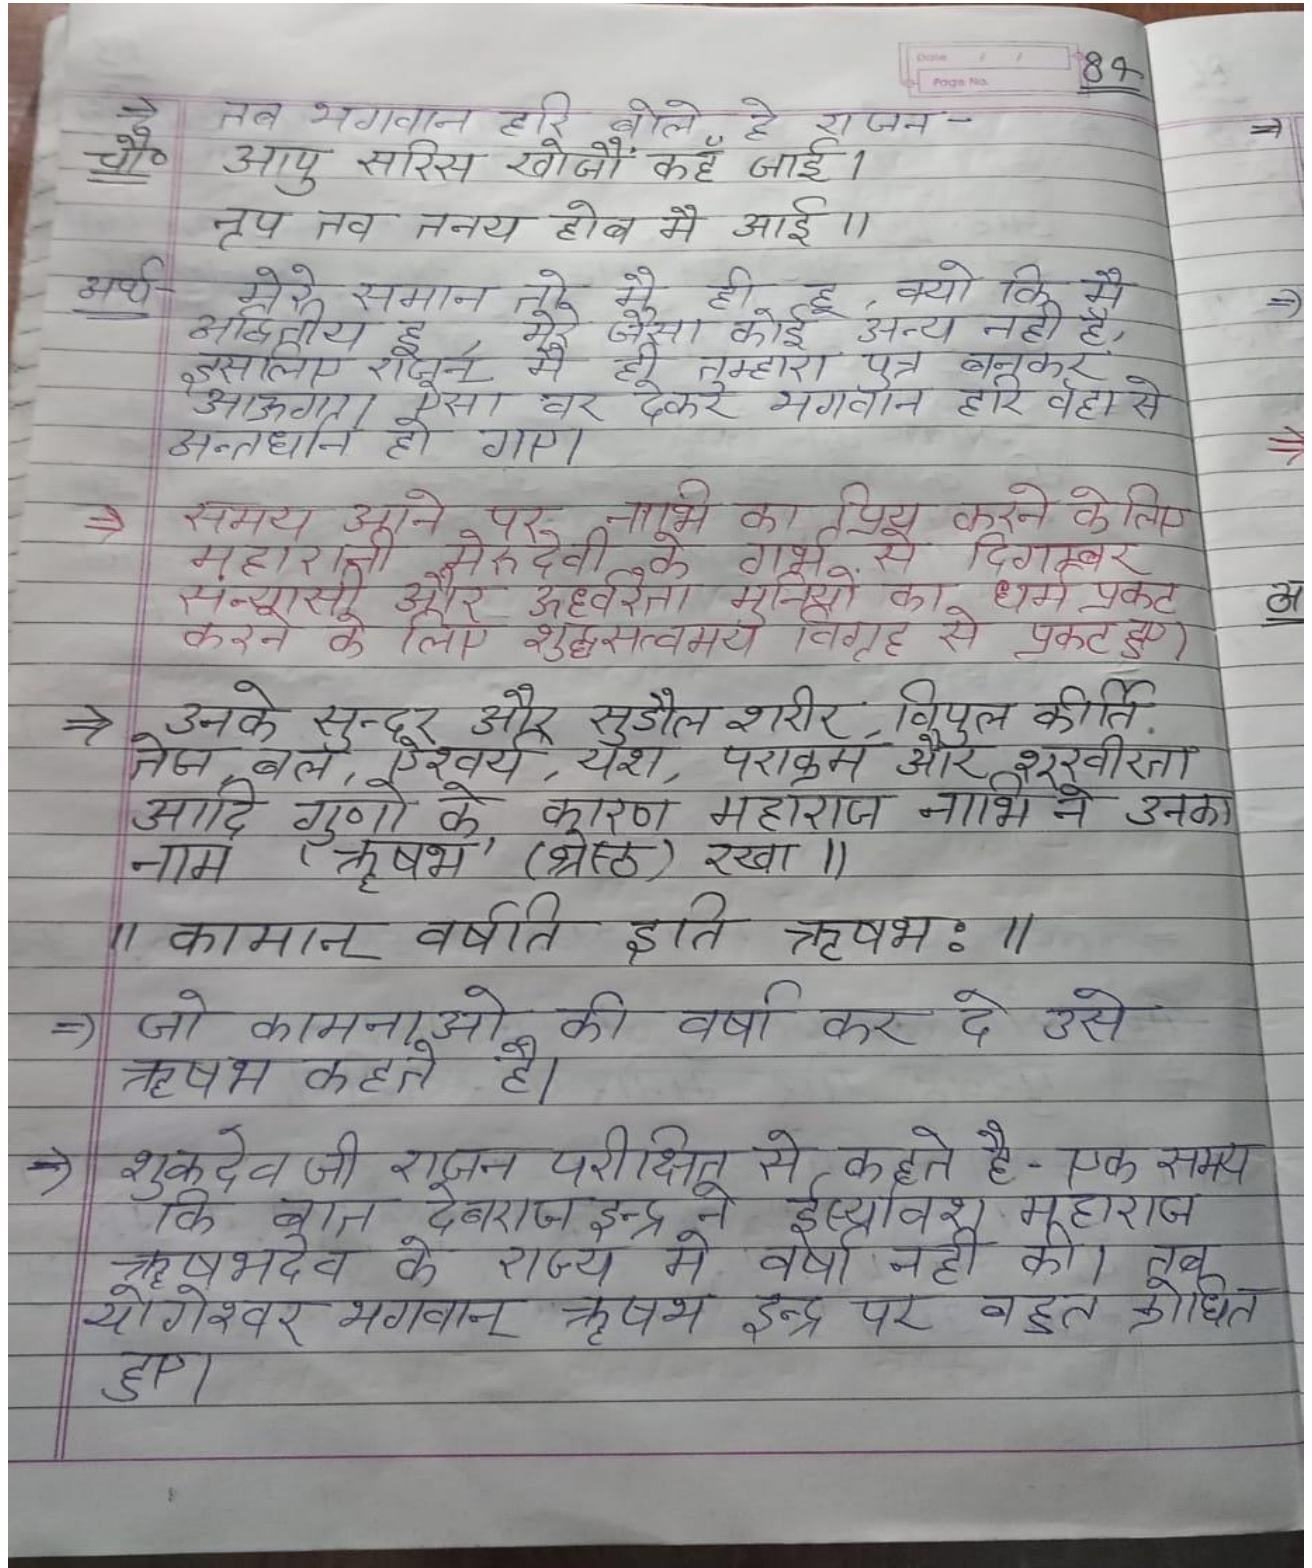 Date / /
Page No.
84
⇒ तब भगवान हरि बोले हे राजन -
चौ० आपु सरिस खोजौं कहँ जाई।
नृप तव तनय होब मै आई॥
अर्थ- मेरे समान तो मै ही हू, क्यो कि मै
अद्वितीय हू, मेरे जैसा कोई अन्य नही है,
इसलिए राजन् मै ही तुम्हारा पुत्र बनकर
आऊगा। ऐसा वर देकर भगवान हरि वहा से
अन्तर्धान हो गए।
⇒ समय आने पर नाभि का प्रिय करने के लिए
महारानी मेरुदेवी के गर्भ से दिगम्बर
सन्यासी और ऊर्ध्वरेता मुनियो का धर्म प्रकट
करने के लिए शुद्धसत्वमय विगृह से प्रकट हुए।
⇒ उनके सुन्दर और सुडौल शरीर, विपुल कीर्ति,
तेज, बल, ऐश्वर्य, यश, पराक्रम और शूरवीरता
आदि गुणो के कारण महाराज नाभि ने उनका
नाम 'ऋषभ' (श्रेष्ठ) रखा॥
॥ कामान् वर्षति इति ऋषभः ॥
⇒ जो कामनाओ की वर्षा कर दे उसे
ऋषभ कहते है।
⇒ शुकदेव जी राजन परीक्षित् से कहते है - एक समय
कि बात देवराज इन्द्र ने ईर्ष्यावश महाराज
ऋषभदेव के राज्य मे वर्षा नही की। तब
योगेश्वर भगवान् ऋषभ इन्द्र पर बहुत क्रोधित
हुए।
⇒
⇒
⇒
अ